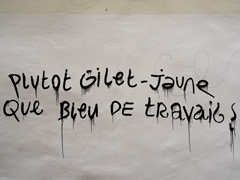 PLUTOT GILET-JAUNE
QUE BLEU DE TRAVAIL